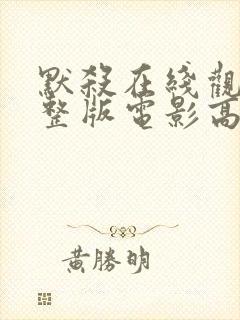 默殺在綫觀
整版電影高
黃勝明